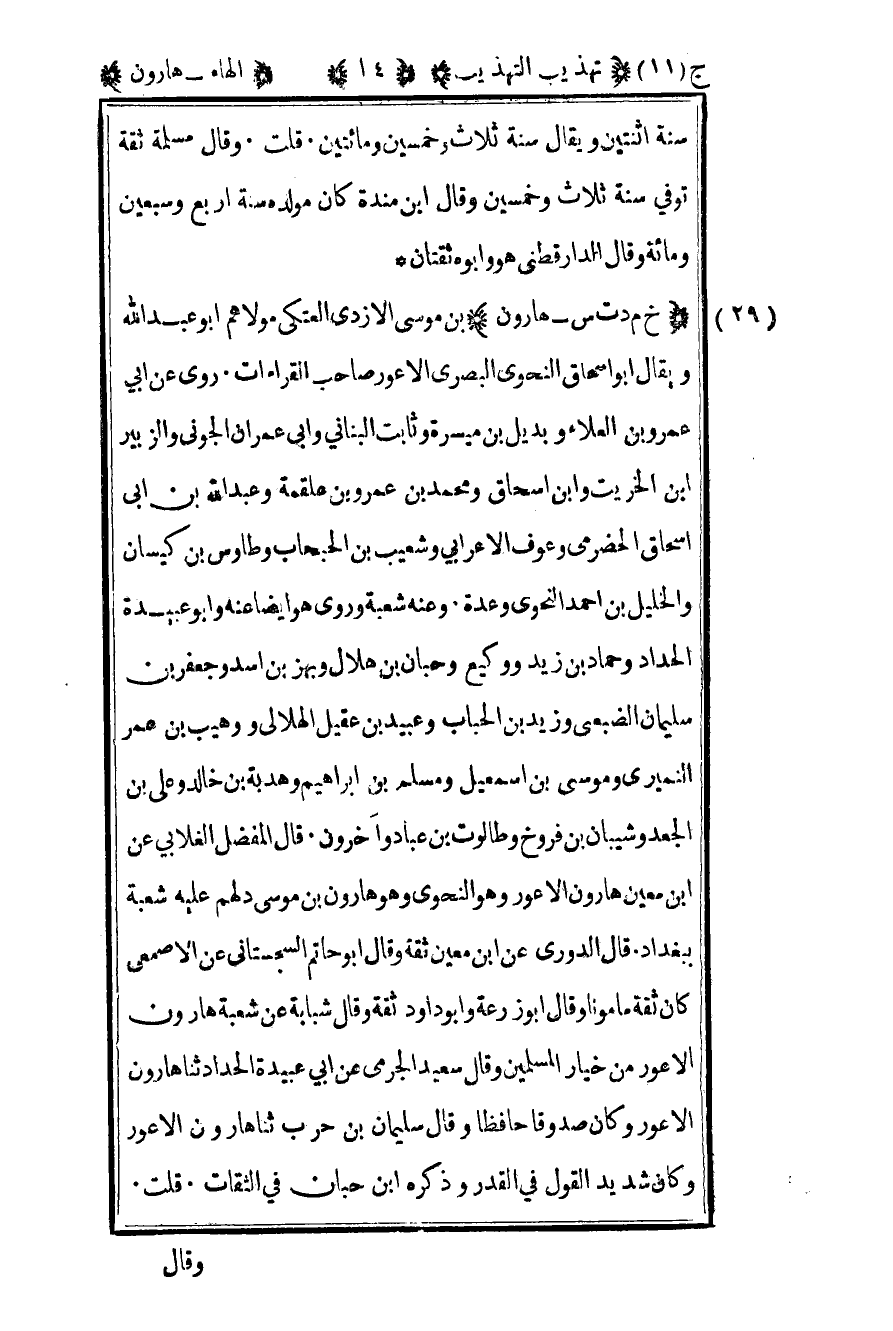 ج (١١) ﴿ تهذيب التهذيب ﴾ ﴿ ١٤ ﴾ ﴿ الهاء ـ هارون ﴾
سنة اثنتين ويقال سنة ثلاث وخمسين ومائتين ٠ قلت ٠ وقال مسلمة ثقة
توفي سنة ثلاث وخمسين وقال ابن مندة كان مولده سنة اربع وسبعين
ومائة وقال الدارقطنى هو وابوه ثقتان *
(٢٩) ﴿ خ م د ت س ـ هارون ﴾ بن موسى الازدى العتكى مولاهم ابو عبـد الله
ويقال ابو اسحاق النحوى البصرى الاعور صاحب القراءات ٠ روى عن ابي
عمرو بن العلاء وبديل بن ميسرة وثابت البناني وابى عمران الجونى والزبير
ابن الخريت وابن اسحاق ومحمد بن عمرو بن علقمة وعبد الله بن ابى
اسحاق الحضرمى وعوف الاعرابي وشعيب بن الحبحاب وطاوس بن كيسان
والخليل بن احمد النحوى وعدة ٠ وعنه شعبة وروى هو ايضا عنه وابو عبيـدة
الحداد وحماد بن زيد ووكيع وحبان بن هلال وبهز بن اسد وجعفر بن
سليمان الضبعى وزيد بن الحباب وعبيد بن عقيل الهلالى و وهيب بن عمر
النميرى وموسى بن اسمعيل ومسلم بن ابراهيم وهدبة بن خالد وعلى بن
الجعد وشيبان بن فروخ وطالوت بن عباد وآخرون ٠ قال المفضل الغلابي عن
ابن معين هارون الاعور وهو النحوى وهو هارون بن موسى دلهم عليه شعبة
ببغداد ٠ قال الدورى عن ابن معين ثقة وقال ابو حاتم السجستانى عن الاصمعى
كان ثقة مامونا وقال ابو زرعة وابو داود ثقة وقال شبابة عن شعبة هارون
الاعور من خيار المسلمين وقال سعيد الجرمى عن ابي عبيدة الحداد ثنا هارون
الاعور وكان صدوقا حافظا وقال سليمان بن حرب ثنا هارون الاعور
وكان شديد القول في القدر وذكره ابن حبان في الثقات ٠ قلت ٠
وقال